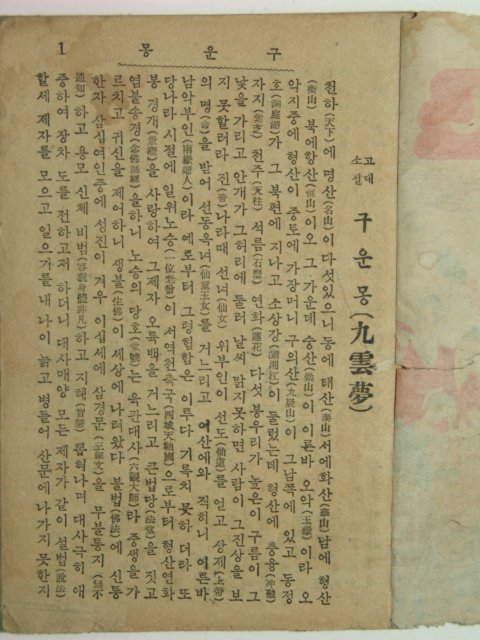 구 운 몽 1
고대소설 구 운 몽 (九雲夢)
천하(天下)에 명산(名山)이 다섯있으니 동에 태산(泰山) 서에화산(華山) 남에 형산
(衡山) 북에항산(恒山)이오 그가운데 숭산(崇山)이 이른바 오악(五嶽)이라 오
악지중에 형산이 중토에 가장머니 구의산(九疑山)이 그남쪽에 있고 동정
호(洞庭湖)가 그 북편에 지나고 소상강(瀟湘江)이 둘렀는데 형산에 충융(冲融)
자지(紫芝) 천주(天柱) 석름(石廩) 연화(蓮花) 다섯 봉우리가 높은이 구름이 그
낯을 가리고 안개가 그허리에 둘러 날씨 맑지못하면 사람이 그진상을 보
지 못할러라 진(晉)나라때 선녀(仙女) 위부인이 선도(仙道)를 얻고 상제(上帝)
의 명(命)을 받어 선동옥녀(仙童玉女)를 거느리고 여산에와 직히니 이른바
남악부인(南嶽夫人)이라 예로부터 그령험함은 이루다 기록지 못하더라 또
당나라 시절에 일위노승(一位老僧)이 서역천축국(西域天竺國)으로부터 형산연화
봉 경개(景槪)를 사랑하여 그제자 오륙백을 거느리고 큰법당(法堂)을 짓고
염불송경(念佛誦經)을하니 노승의 당호(堂號)는 육관대사(六觀大師)라 중생을가
르치고 귀신을 제어하니 생불(生佛)이 세상에 나려왔다 불법(佛法)에 신통
한자 삼십여인중에 성진이 겨우 이십세에 삼경문(三經文)을 무불통지(無不
通知)하고 용모 신체 비범(容貌身體非凡)하고 지혜(智慧) 뽑혀나며 대사극히 애
중하여 장차 도를 전하고저 하더니 대사매양 모든 제자가 같이 설법(說法)
할세 제자를 모으고 일으기를 내 나이 늙고 병들어 산문에 나가지못한지